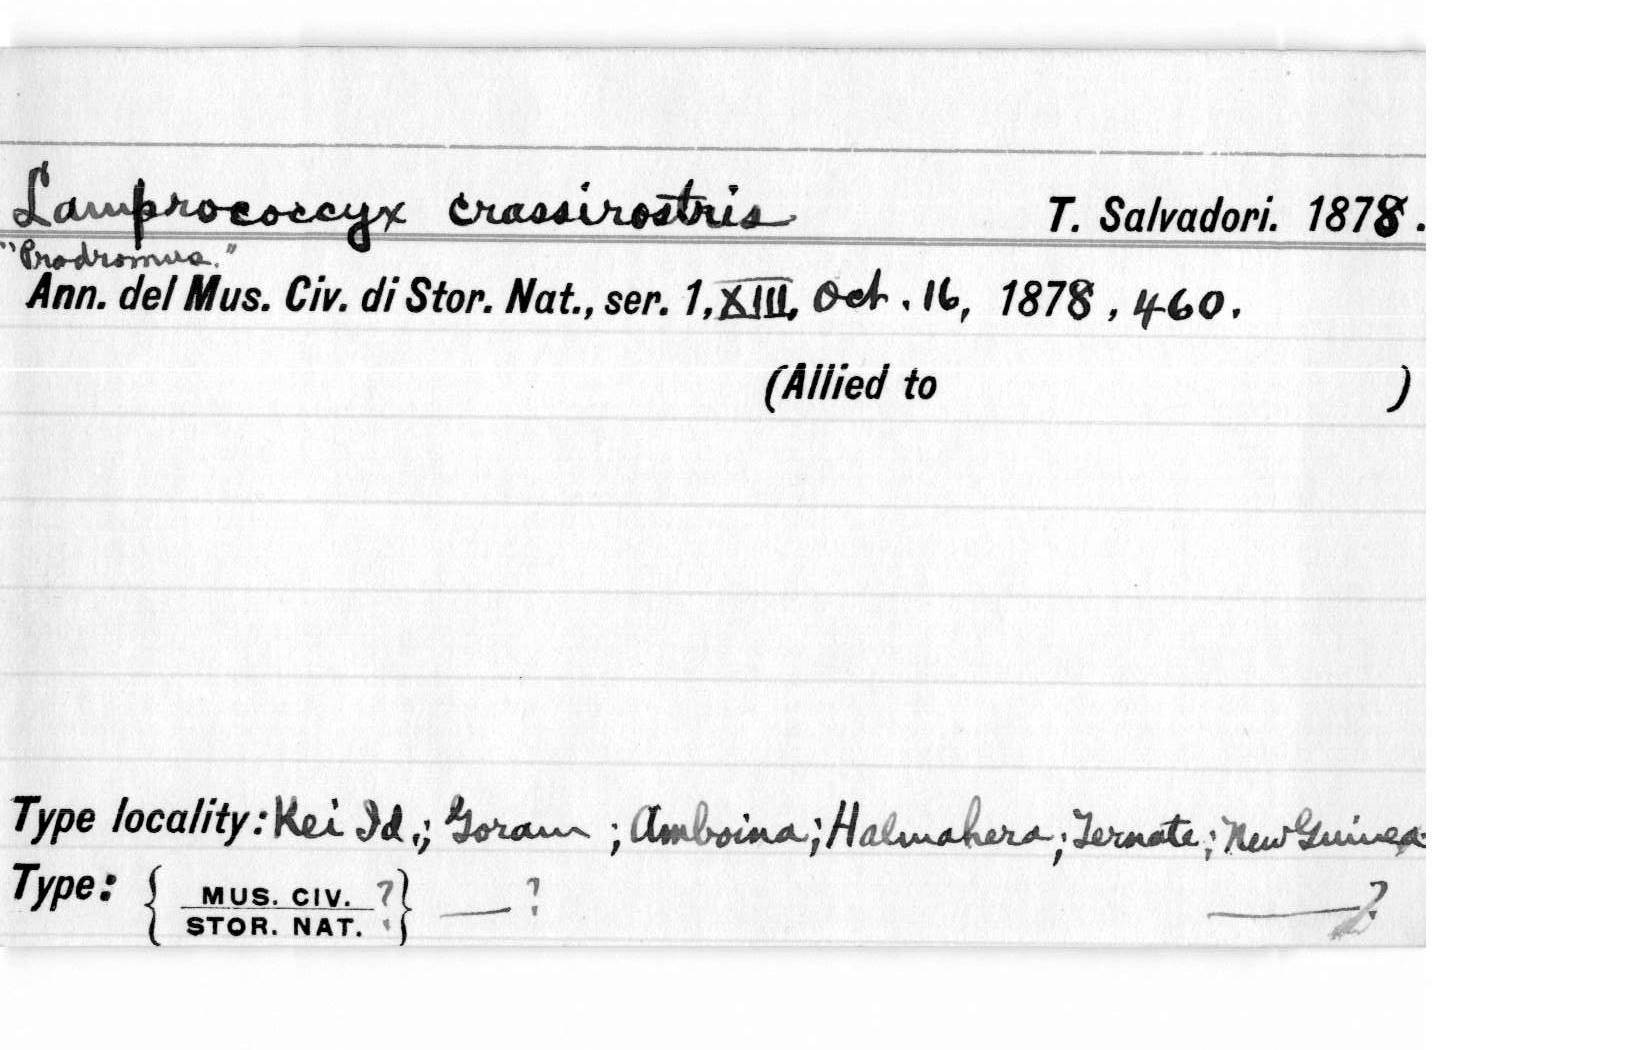 Lamprococcyx crassirostris T. Salvadori. 1878.
"Prodromus."
Ann. del Mus. Civ. di Stor. Nat., ser. 1, XIII, Oct. 16, 1878, 460.
(Allied to )
Type locality: Kei Id.; Goram; Amboina; Halmahera; Ternate; New Guinea.
Type: { MUS. CIV. ? } — ? — ?
STOR. NAT.